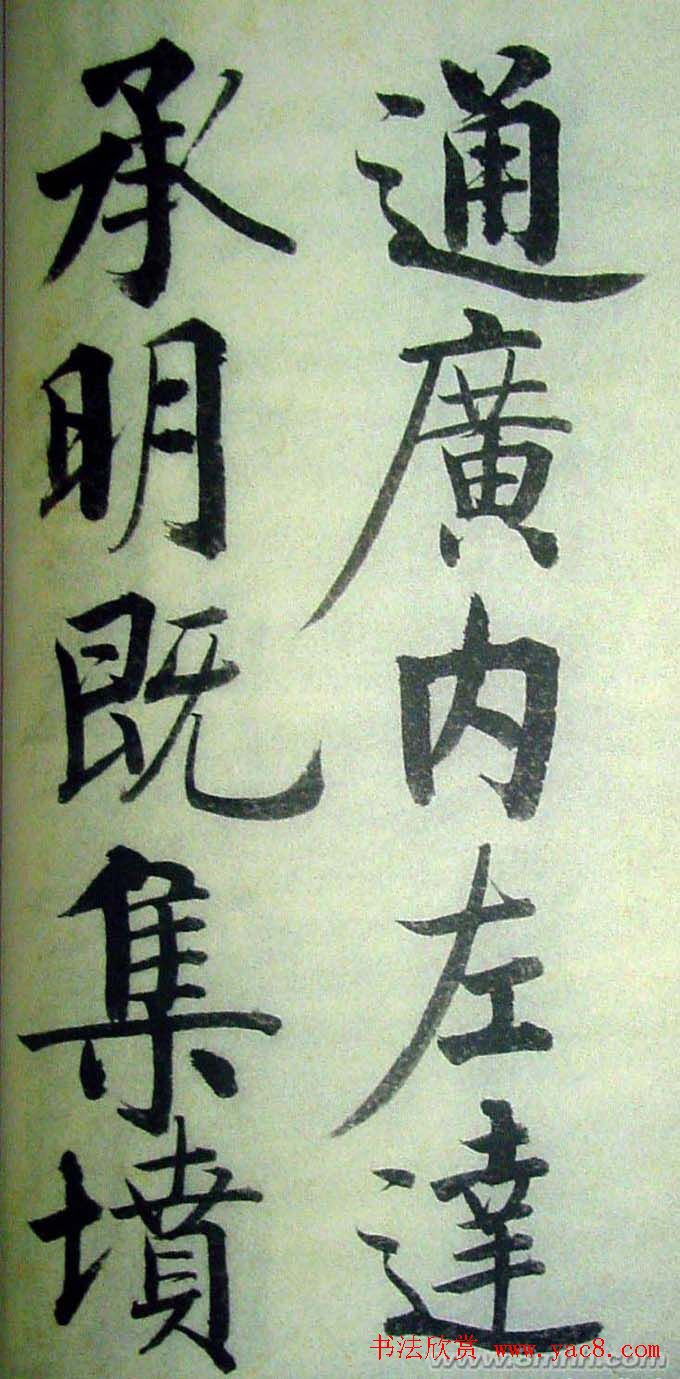 通廣内左達
承明既集墳
书法欣赏 www.yac8.com